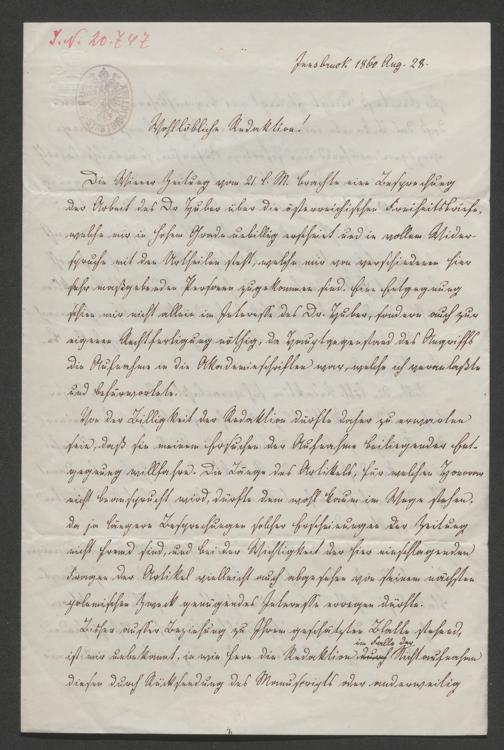 I. N. 20.747
Innsbruck 1860 Aug. 28.
Wohllöbliche Redaktion!
Die Wiener Zeitung vom 21 l. M. brachte eine Besprechung
der Arbeit des Dr Huber über die österreichischen Freiheitsbriefe,
welche mir in hohem Grade unbillig erscheint und in vollem Wider-
spruche mit den Urtheilen steht, welche mir von verschiedenen hier
sehr maßgebenden Personen zugekommen sind. Eine Entgegnung
schien mir nicht allein im Interesse des Dr. Huber, sondern auch zur
eigenen Rechtfertigung nöthig, da Hauptgegenstand des Angriffs
die Aufnahme in die Akademieschriften war, welche ich veranlaßte
und befürwortete.
Von der Billigkeit der Redaktion dürfte daher zu erwarten
sein, daß sie meinem Ersuchen der Aufnahme beiliegender Ent-
gegnung willfahre. Die Länge des Artikels, für welchen Honorar
nicht beansprucht wird, dürfte dem wohl kaum im Wege stehen,
da ja längere Besprechungen solcher Erscheinungen der Zeitung
nicht fremd sind, und bei der Wichtigkeit der hier einschlagenden
Fragen der Artikel vielleicht auch abgesehen von seinem nächsten
polemischen Zweck genügendes Interesse erregen dürfte.
Bisher ausser Beziehung zu Ihrem geschätzten Blatte stehend,
im Falle der
ist mir unbekannt, in wie fern die Redaktion Nichtaufnahme
diesen durch Rücksendung des Manuscripts oder anderweitig